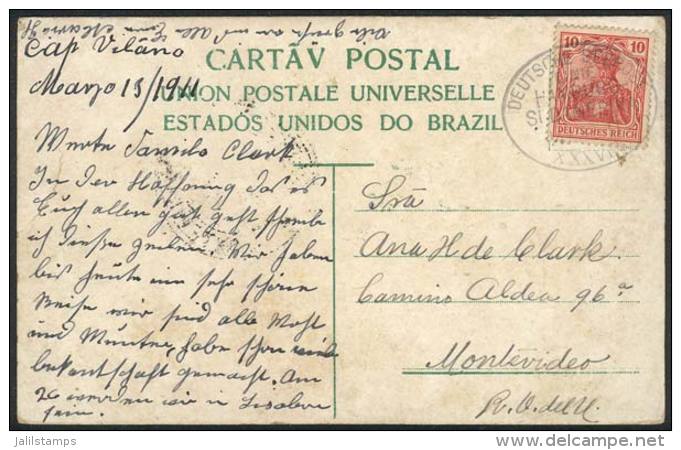 Cap Vilano
Marzo 15/1911
CARTÃV POSTAL
UNION POSTALE UNIVERSELLE
ESTADOS UNIDOS DO BRAZIL
10 10
DEUTSCHES REICH
DEUTSCHE SEEPOST
XXXVII
Werte Familie Clark
In der Hoffnung das es
Euch allen gut geht schreibe
ich diese zeilen. Wir haben
bis heute ein sehr schöne
Reise wir sind alle Wohl
und Munter, habe schon viele
bekantschaft gemacht. Am
26 werden wir in Lisabon
sein.
Sra
Ana H de Clark.
Camino Aldea 96a
Montevideo
R. O. del U.
jalilstamps
www.delcampe.net